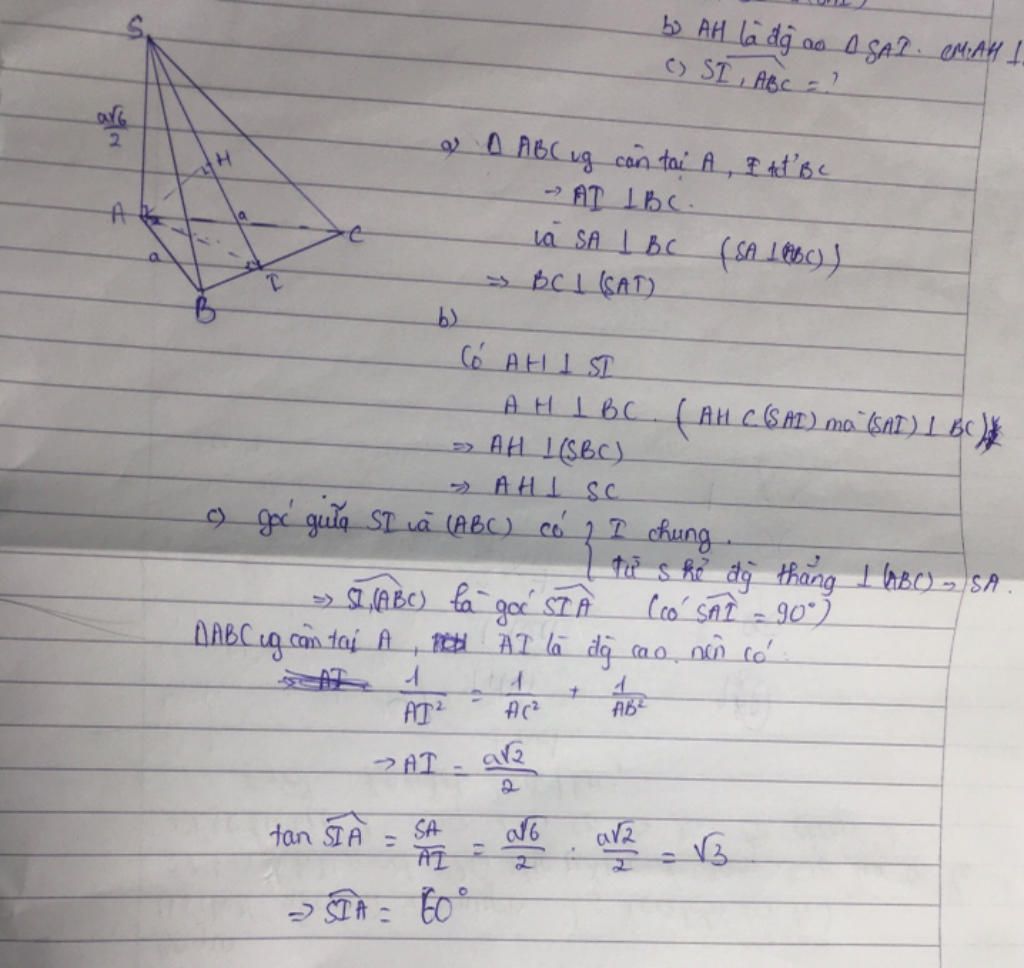 b) AH là đg cao Δ SAI. CM: AH ⊥
c) SI, ABC = ?
S
a√6/2
H
A
a
C
a
I
B
a) Δ ABC vg cân tại A, I tđ BC
→ AI ⊥ BC.
và SA ⊥ BC (SA ⊥ (ABC))
⇒ BC ⊥ (SAI)
b)
Có AH ⊥ SI
AH ⊥ BC. (AH ⊂ (SAI) mà (SAI) ⊥ BC)
⇒ AH ⊥ (SBC)
⇒ AH ⊥ SC
c) góc giữa SI và (ABC) có { I chung.
từ S kẻ đg thẳng ⊥ (ABC) = SA.
⇒ SI,(ABC) là góc SIA (có SAI = 90°)
ΔABC vg cân tại A, AI là đg cao nên có
1/AI² = 1/AC² + 1/AB²
→ AI = a√2/2
tan SIA = SA/AI = a√6/2 : a√2/2 = √3
⇒ SIA = 60°